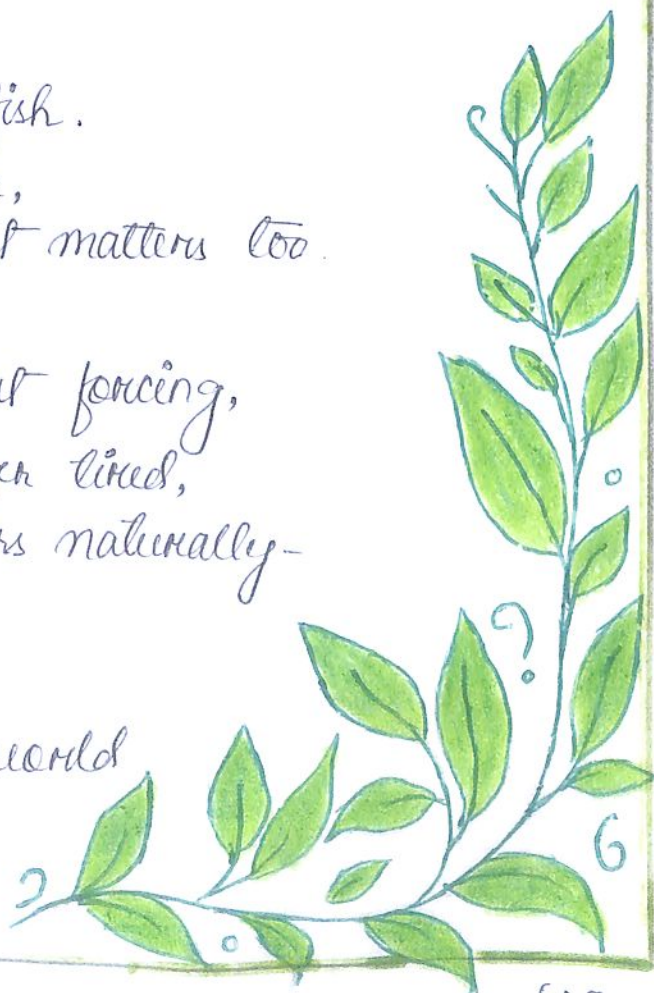 ish.
,
t matters too.
t forcing,
n tired,
rs naturally-
world